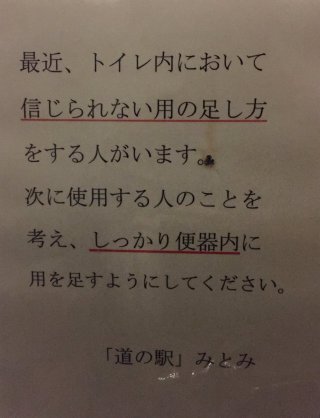 最近、トイレ内において
信じられない用の足し方
をする人がいます。
次に使用する人のことを
考え、しっかり便器内に
用を足すようにしてください。
「道の駅」みとみ